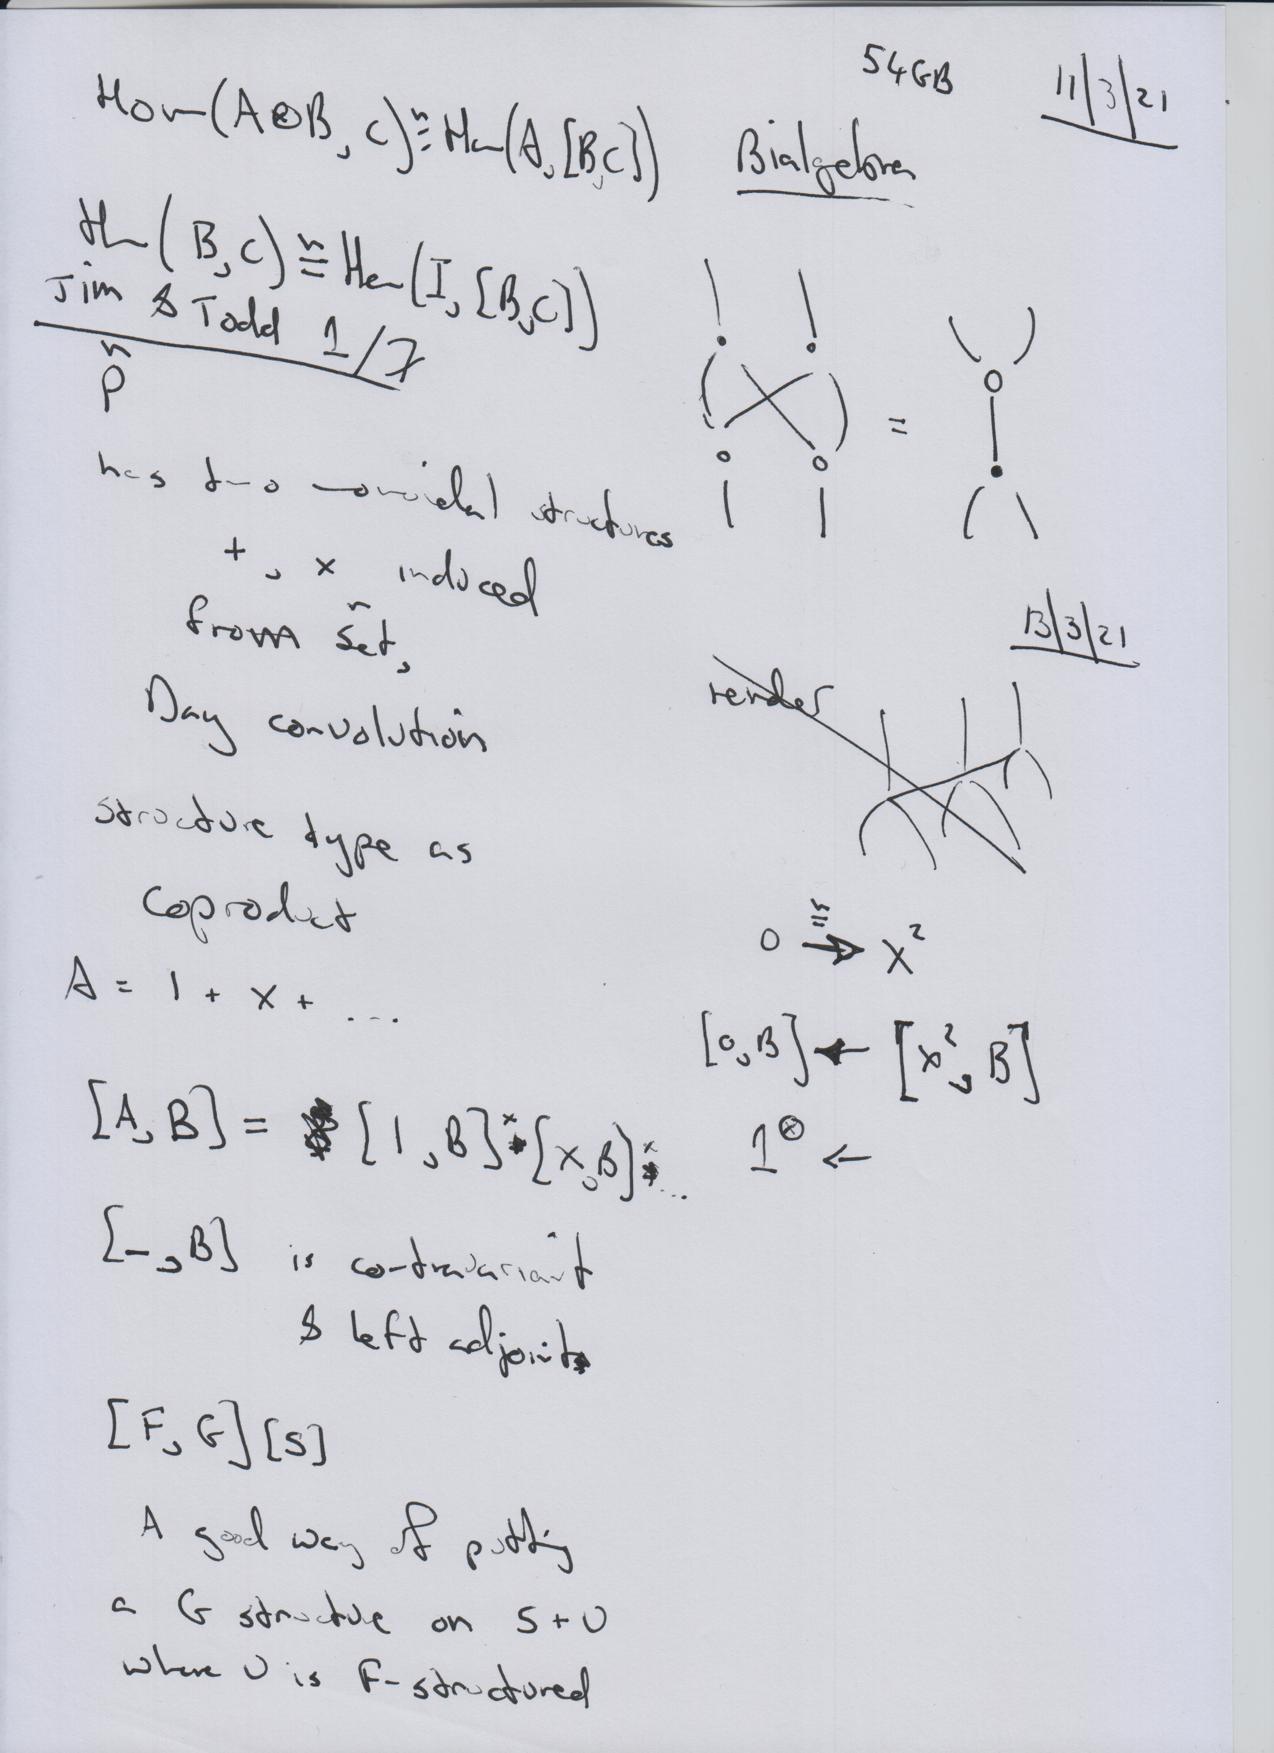 54GB
11/3/21
Hom(A⊗B, C) ≅ Hom(A, [B,C])
Bialgebra
Hom(B, C) ≅ Hom(I, [B,C])
Jim & Todd 1/7
P̂
=
has two monoidal structures
+, × induced
from Set,
13/3/21
render
Day convolution
structure type as
coproduct
0 → X²
A = 1 + X + ...
[0, B] ← [X², B]
[A, B] = [1, B] × [X, B] × ...
1 ←
[-, B] is contravariant
& left adjoint
[F, G][S]
A good way of putting
a G structure on S + U
where U is F-structured